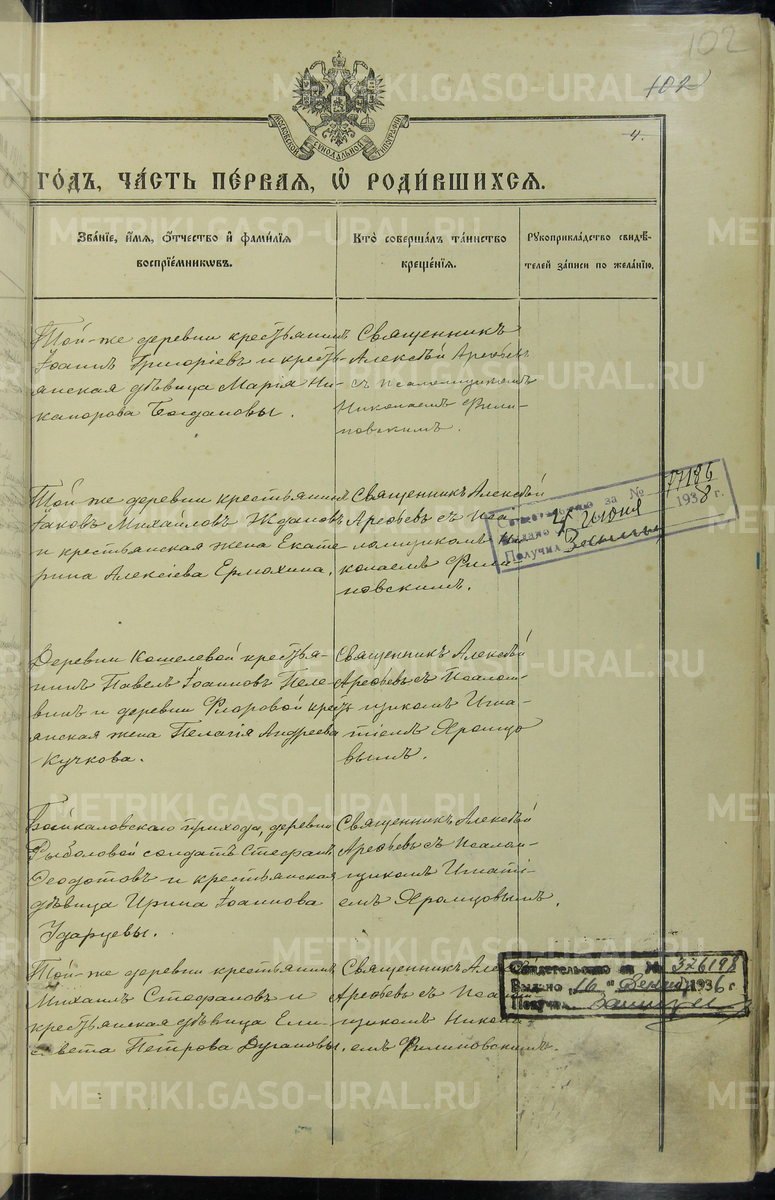 102
102
4.
МОСКОВСКОЙ СѴНОДАЛЬНОЙ ТИПОГРАФІИ
ГО́ДЪ, ЧА́СТЬ ПЕ́РВАЯ, Ѽ РОДИ́ВШИХСЯ.
Зва́нїе, и҆́мя, ѻ҆́тчество и҆ фами́лїя
воспрїе́мникωвъ.
Кто̀ соверша́лъ та́инство
креще́нїя.
Рꙋкоприкла́дство свидѣ́-
телей за́писи по жела́нїю.
Той-же деревни крестьянинъ
Іоаннъ Григоріевъ и кресть-
янская дѣвица Марія Ни-
канорова Богдановы.
Священникъ
Алексѣй Арефьевъ
съ псаломщикомъ
Николаемъ Фили-
повскимъ.
Той-же деревни крестьянинъ
Іаковъ Михайловъ Ждановъ
и крестьянская жена Екате
рина Алексіева Ермохина.
Священникъ Алексѣй
Арефьевъ съ пса-
ломщикомъ Ни-
колаемъ Фили-
повскимъ.
за № 77186
4 июня 1938 г.
Получил
Деревни Кошелевой кресть-
нинъ Павелъ Іоанновъ Пеле-
винъ и деревни Фроровой крест-
янская жена Пелагія Андреева
Кучкова.
Священникъ Алексѣй
Арефьевъ съ псалом-
щикомъ Игна-
тіемъ Яромцо
вымъ.
Байкаловскаго прихода, деревни
Рыболовой солдатъ Стефанъ
Ѳеодотовъ и крестьянская
дѣвица Ирина Іоаннова
Ударцевы.
Священникъ Алексѣй
Арефьевъ съ псалом-
щикомъ Игнаті-
емъ Яромцовымъ.
Той-же деревни крестьянинъ
Михаилъ Стефановъ и
крестьянская дѣвица Ели-
савета Петрова Дугановы.
Священникъ Алексѣй
Арефьевъ съ псалом
щикомъ Никола-
емъ Филиповскимъ.
Свидетельство за № 376198
Выдано "16" 1936 г
Получил
METRIKI.GASO-URAL.RU